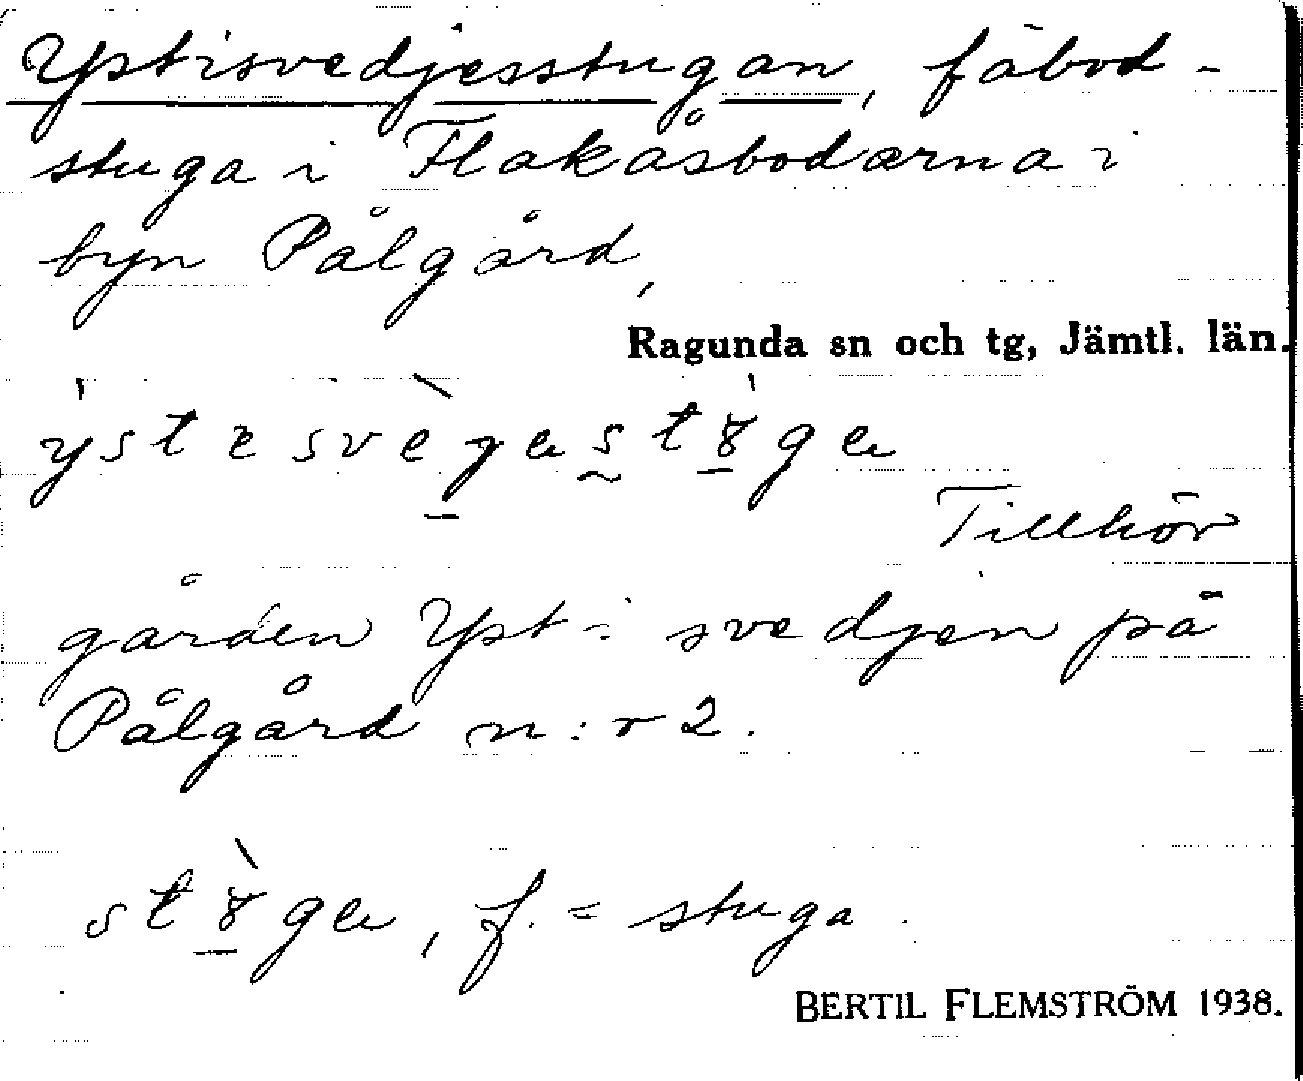 Ystisvedjesstugan, fäbod-
stuga i Flakåsbodarna i
byn Pålgård,
Ragunda sn och tg, Jämtl. län.
Tillhör
gården Yst i svedjen på
Pålgård n:r 2.
f. = stuga.
BERTIL FLEMSTRÖM 1938.